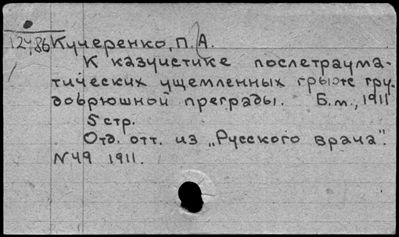 12486 Кучеренко, П. А.
К казуистике послетраума-
тических ущемленных грыж гру-
добрюшной преграды. Б.м., 1911
5 стр.
Отд. отт. из „Русского врача".
N49 1911.